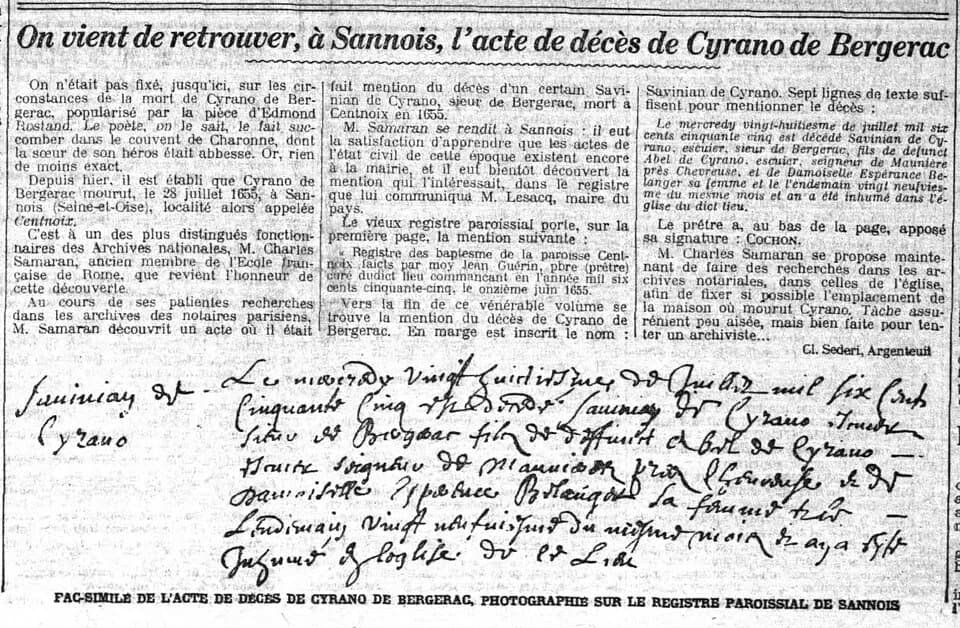 On vient de retrouver, à Sannois, l'acte de décès de Cyrano de Bergerac
On n'était pas fixé, jusqu'ici, sur les cir-
constances de la mort de Cyrano de Ber-
gerac, popularisé par la pièce d'Edmond
Rostand. Le poète, on le sait, le fait suc-
comber dans le couvent de Charonne, dont
la sœur de son héros était abbesse. Or, rien
de moins exact.
Depuis hier, il est établi que Cyrano de
Bergerac mourut, le 28 juillet 1655, à San-
nois (Seine-et-Oise), localité alors appelée
Centnoix.
C'est à un des plus distingués fonction-
naires des Archives nationales, M. Charles
Samaran, ancien membre de l'Ecole fran-
çaise de Rome, que revient l'honneur de
cette découverte.
Au cours de ses patientes recherches
dans les archives des notaires parisiens,
M. Samaran découvrit un acte où il était
fait mention du décès d'un certain Savi-
nian de Cyrano, sieur de Bergerac, mort à
Centnoix en 1655.
M. Samaran se rendit à Sannois : il eut
la satisfaction d'apprendre que les actes de
l'état civil de cette époque existent encore
à la mairie, et il eut bientôt découvert la
mention qui l'intéressait, dans le registre
que lui communiqua M. Lesacq, maire du
pays.
Le vieux registre paroissial porte, sur la
première page, la mention suivante :
« Registre des baptesme de la paroisse Cent-
noix faicts par moy Jean Guérin, pbre (prêtre)
curé dudict lieu commancant en l'année mil six
cents cinquante-cinq, le onzième juin 1655.
Vers la fin de ce vénérable volume se
trouve la mention du décès de Cyrano de
Bergerac. En marge est inscrit le nom :
Savinian de Cyrano. Sept lignes de texte suf-
fisent pour mentionner le décès :
Le mercredy vingt-huitiesme de juillet mil six
cents cinquante cinq est décédé Savinian de Cy-
rano, escuier, sieur de Bergerac, fils de defunct
Abel de Cyrano, escuier, seigneur de Maunière
près Chevreuse, et de Damoiselle Espérance Be-
langer sa femme et le l'endemain vingt neufvies-
me du mesme mois et an a été inhumé dans l'é-
glise du dict lieu.
Le prêtre a, au bas de la page, apposé
sa signature : COCHON.
M. Charles Samaran se propose mainte-
nant de faire des recherches dans les ar-
chives notariales, dans celles de l'église,
afin de fixer si possible l'emplacement de
la maison où mourut Cyrano. Tâche assu-
rément peu aisée, mais bien faite pour ten-
ter un archiviste...
Cl. Sederi, Argenteuil
Savinian de
Cyrano
Le mercredy vingt huictiesme de Juillet mil six cents
cinquante cinq est décédé Savinian de Cyrano
sieur de Bergerac filz de deffunct Abel de Cyrano
seigneur de près Chevreuse et de
Damoiselle Esperence sa femme
Lendemain vingt neufuiesme du mesme mois
Inhumé
FAC-SIMILÉ DE L'ACTE DE DÉCÈS DE CYRANO DE BERGERAC, PHOTOGRAPHIÉ SUR LE REGISTRE PAROISSIAL DE SANNOIS